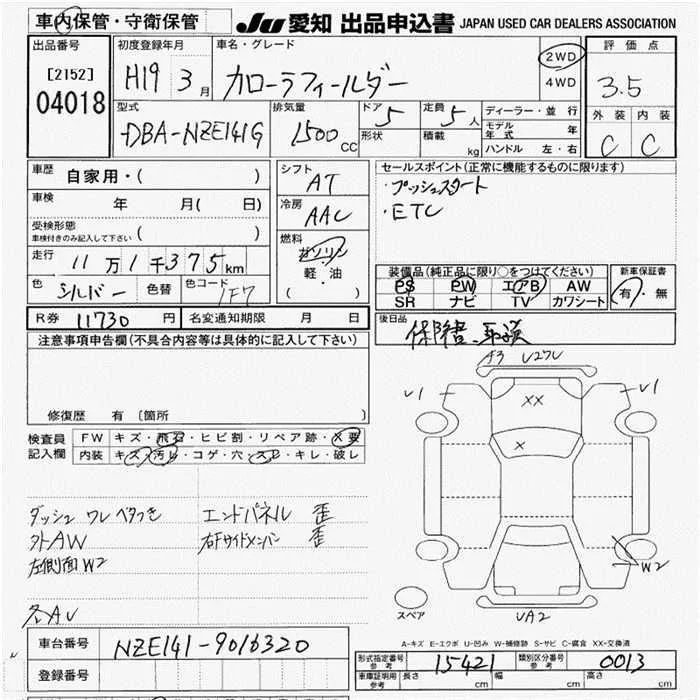 車内保管・守衛保管
JU 愛知 出品申込書 JAPAN USED CAR DEALERS ASSOCIATION
出品番号
[2152]
04018
初度登録年月
H19 3月
車名・グレード
カローラフィールダー
2WD
4WD
評価点
3.5
外装 内装
C C
型式
DBA-NZE141G
排気量
1500CC
ドア 5
形状
定員 5人
積載 kg
ディーラー・並行
モデル年式 年
ハンドル 左・右
車歴 自家用・( )
車検 年 月( 日)
受検形態
車検付きのみ記入して下さい ( )
走行 11万1千375km
色 シルバー 色替 色コード 1F7
シフト AT
冷房 AAC
燃料
ガソリン
軽・油
( )
セールスポイント(正常に機能するものに限ります)
・プッシュスタート
・ETC
装備品(純正品に限り○をつけてください)
PS PW エアB AW
SR ナビ TV カワシート
新車保証書
有・無
R券 11730円 名変通知期限 月 日
後日品
保障書、取説
注意事項申告欄(不具合内容等は具体的に記入して下さい)
修復歴 有 〔箇所
検査員記入欄
FW キズ・飛石・ヒビ割・リペア跡・X要
内装 キズ・汚レ・コゲ・穴・スレ・キレ・破レ
ダッシュ ワレ ベタつき エンドパネル 歪
外AW 右Fサイドメンバー 歪
左側面W2
各AU
A3 U27U
U1
U1
XX
X
W2
UA2
スペア
A-キズ E-エクボ U-凹み W-補修跡 S-サビ C-腐食 XX-交換済
車台番号 NZE141-9016320
登録番号
形式指定番号 参考 15421 類別区分番号 参考 0013
車庫証明用 参考 長さ cm 幅 cm 高さ cm